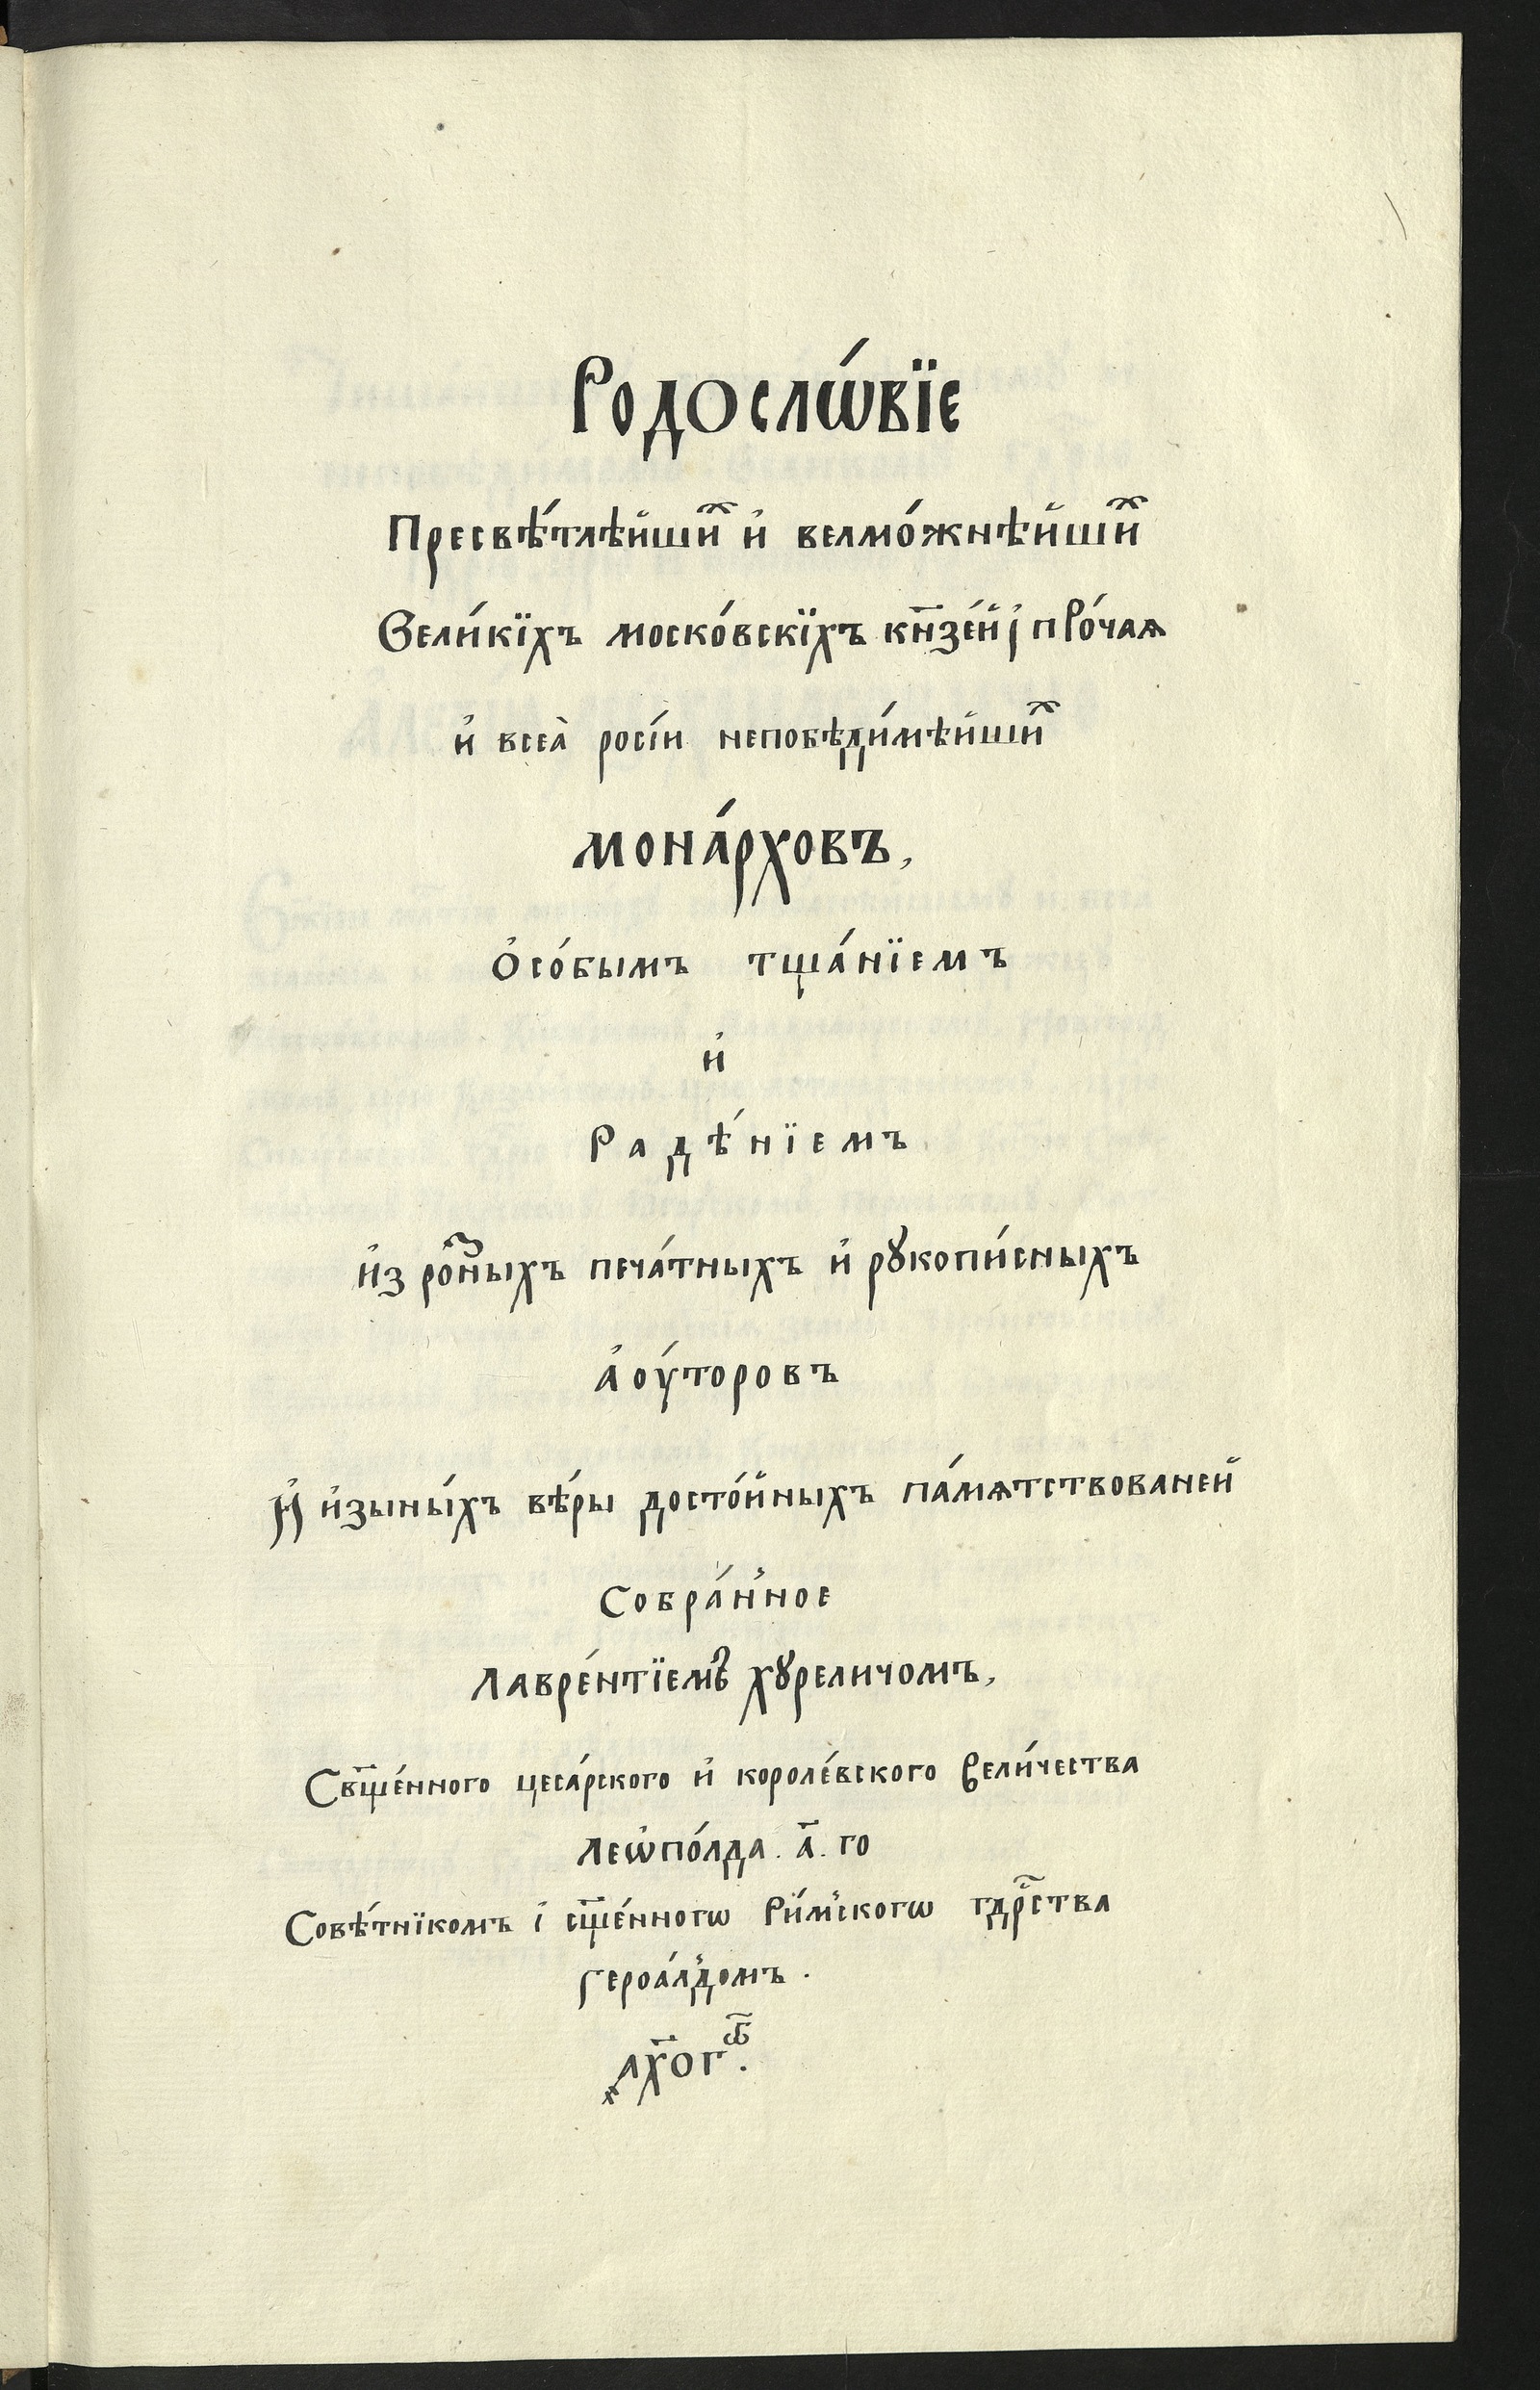 Родослѡ́вїе
Пресвѣ́тлѣйшиⷯ и҆ велмо́жнѣйшиⷯ
Вели́кїхъ моско́вскїхъ кн҃зе́й і҆ про́чаѧ
и҆ всеѧ̀ росі́и непобѣди́мѣйшиⷯ
мона́рховъ,
Ѻ҆со́бымъ тща́нїемъ
и҆
Радѣ́нїемъ
и҆з ро́ⷥныхъ печа́тныхъ и҆ рꙋкопи́сныхъ
а҆оу́торовъ
И҆ и҆зыны́хъ вѣ́ры досто́йныхъ па́мѧтствованей
Собра́нное
Лавре́нтїемъ хꙋреличомъ,
Свщ҃е́нного цеса́рского и҆ короле́вского Вели́чества
леѡпо́лда. а҃. го
Совѣ́тнїкомъ і҆ сщ҃е́нногѡ Ри́мскогѡ гдрⷭ҇тва
героа́лдомъ.
҂ах҃огⷢ҇ѿ.